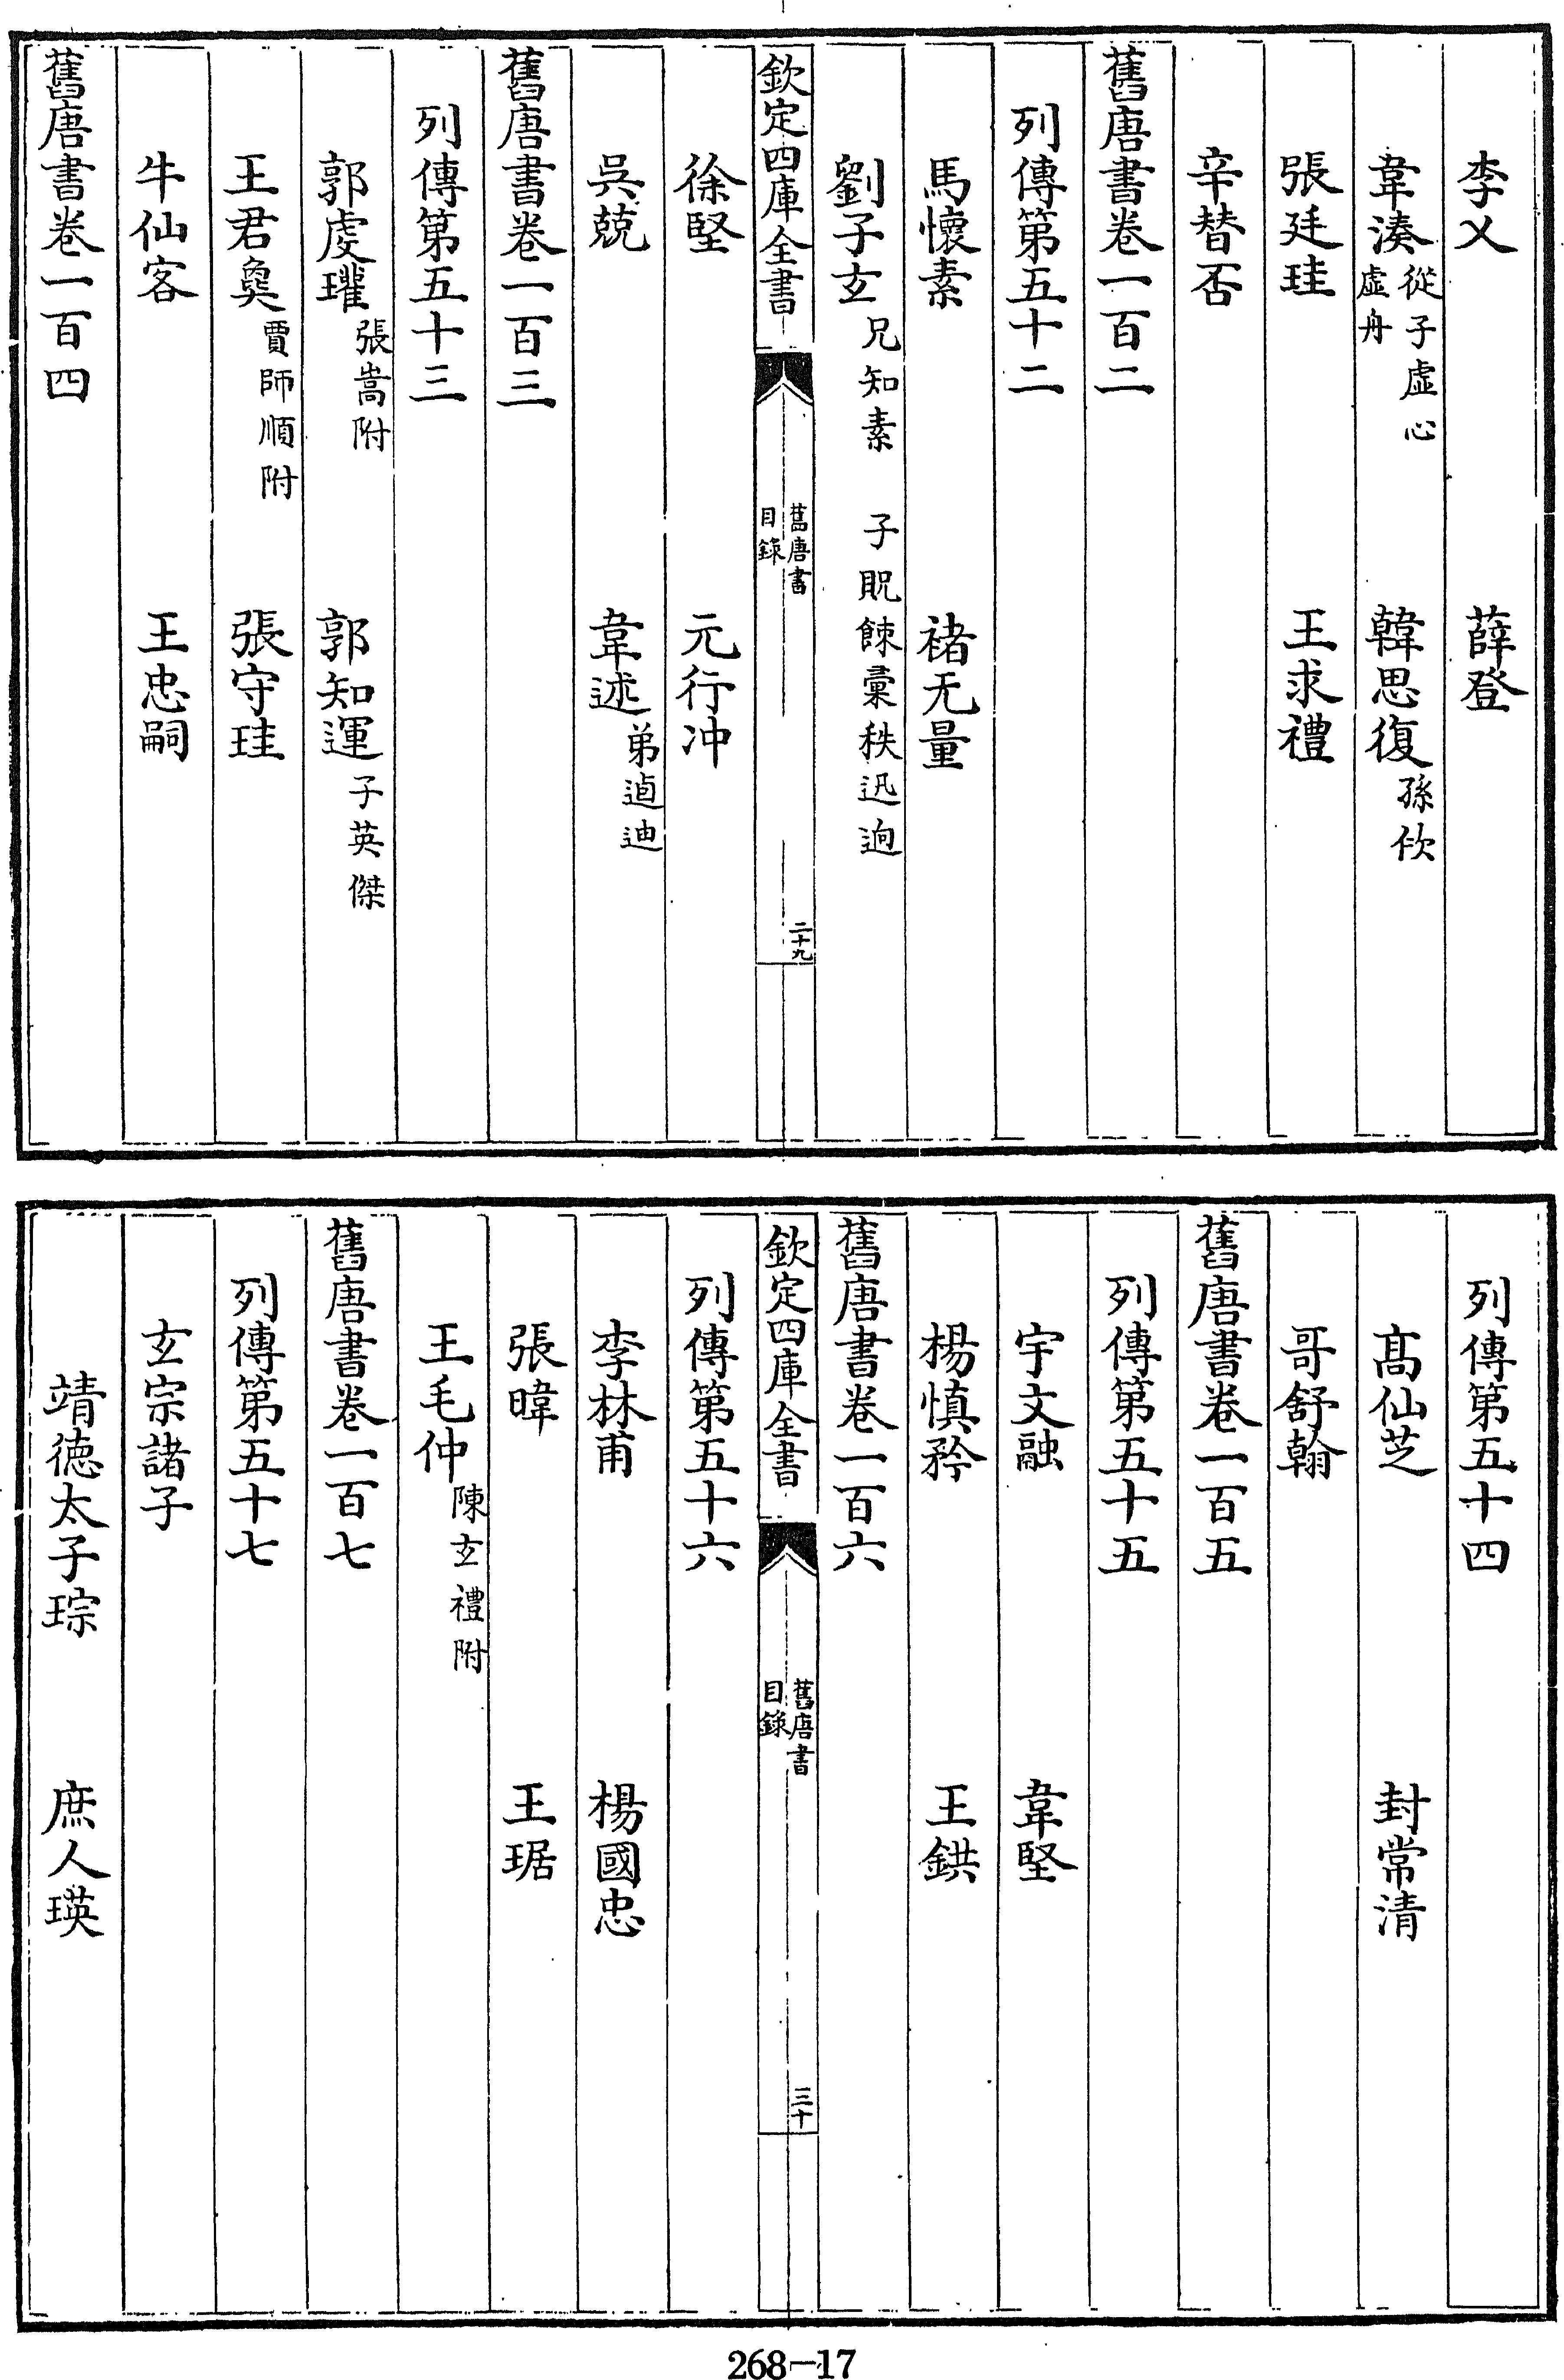 李乂　薛登
韋湊從子虛心虛舟　韓思復孫佽
張廷珪　王求禮
辛替否
舊唐書卷一百二
列傳第五十二
馬懷素　褚无量
劉子玄兄知柔　子貺餗彙秩迅迥
欽定四庫全書　舊唐書目錄　二十九
徐堅　元行冲
吳兢　韋述弟逌迪
舊唐書卷一百三
列傳第五十三
郭虔瓘張嵩附　郭知運子英傑
王君㚟賈師順附　張守珪
牛仙客　王忠嗣
舊唐書卷一百四
列傳第五十四
高仙芝　封常清
哥舒翰
舊唐書卷一百五
列傳第五十五
宇文融　韋堅
楊慎矜　王鉷
舊唐書卷一百六
欽定四庫全書　舊唐書目錄　三十
列傳第五十六
李林甫　楊國忠
張暐　王琚
王毛仲陳玄禮附
舊唐書卷一百七
列傳第五十七
玄宗諸子
靖德太子琮　庶人瑛
268-17